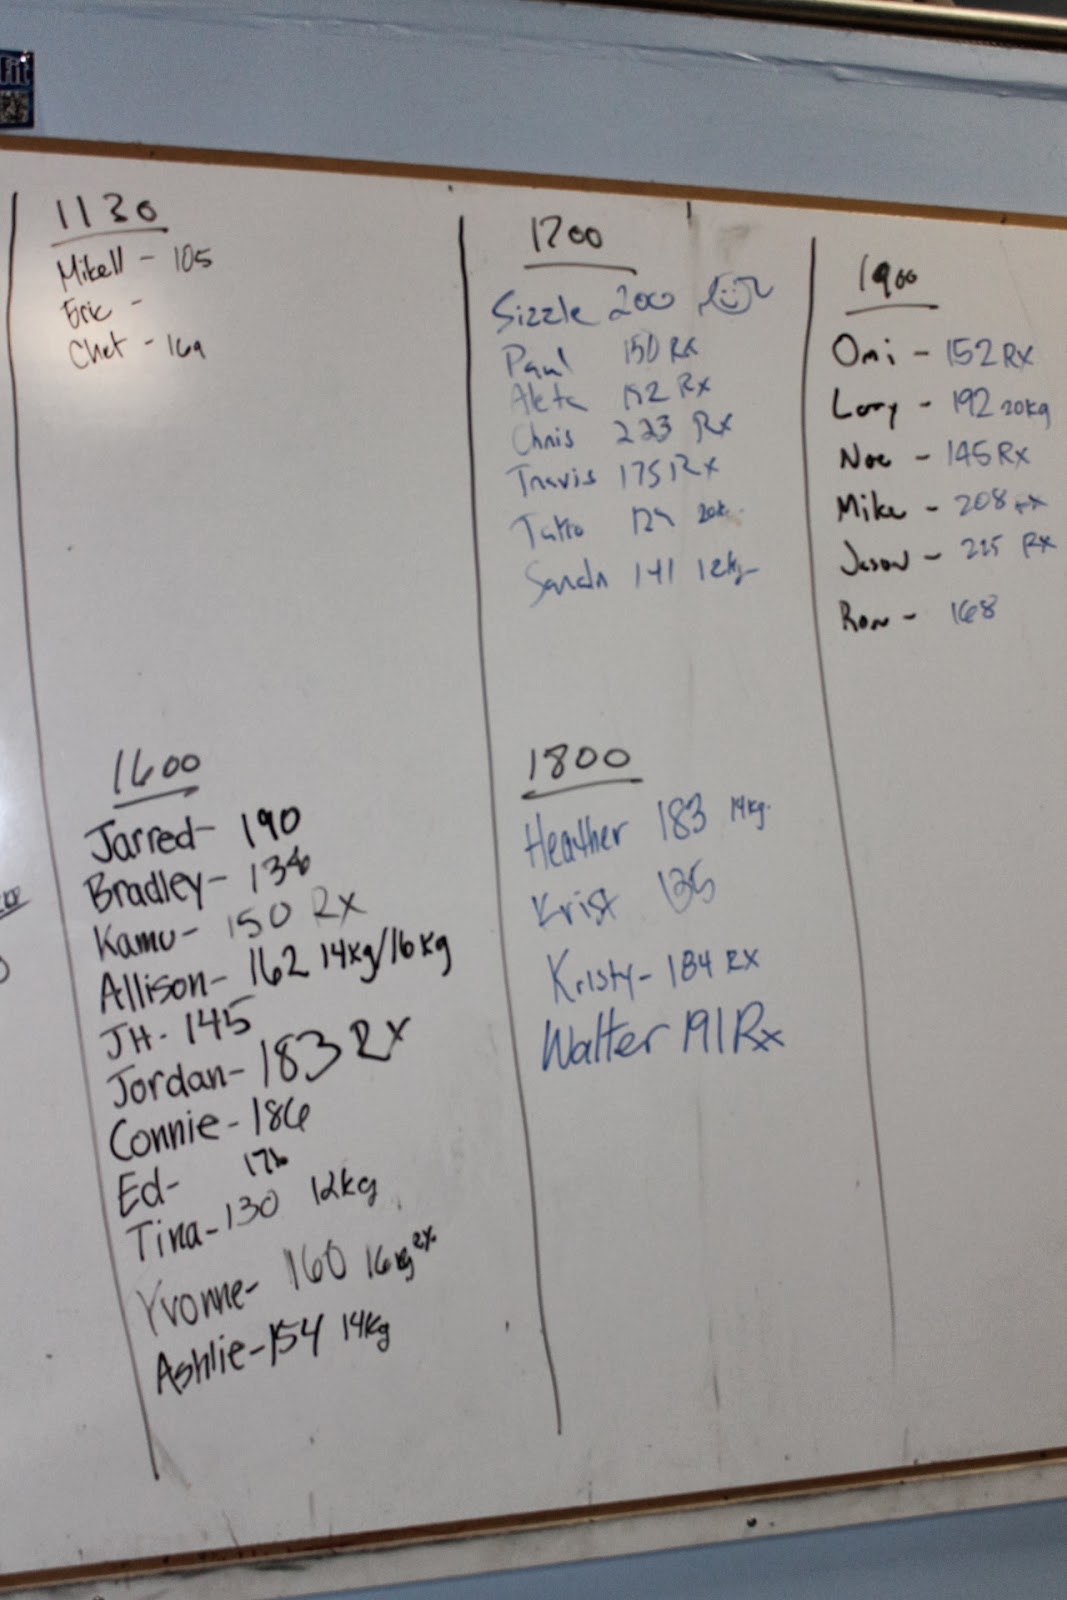 fit
1130
Mikell - 105
Eric -
Chet - 169
1600
Jarred- 190
Bradley- 136
Kamu- 150 Rx
Allison- 162 14kg/16kg
JH- 145
Jordan- 183 Rx
Connie- 186
Ed-
Tina- 130 12kg
Yvonne- 160 16kg
Ashlie- 154 14kg
1700
Sizzle 200
Paul 150 Rx
Aleta 192 Rx
Chris 223 Rx
Travis 175 Rx
129
141 12kg
1800
Heather 183 14kg.
Krist 135
Kristy- 184 Rx
Walter 191 Rx
1900
Omi - 152 Rx
Lory - 192 20kg
Noe - 145 Rx
Mike - 208 Rx
Jason - 225 Rx
Ron - 168